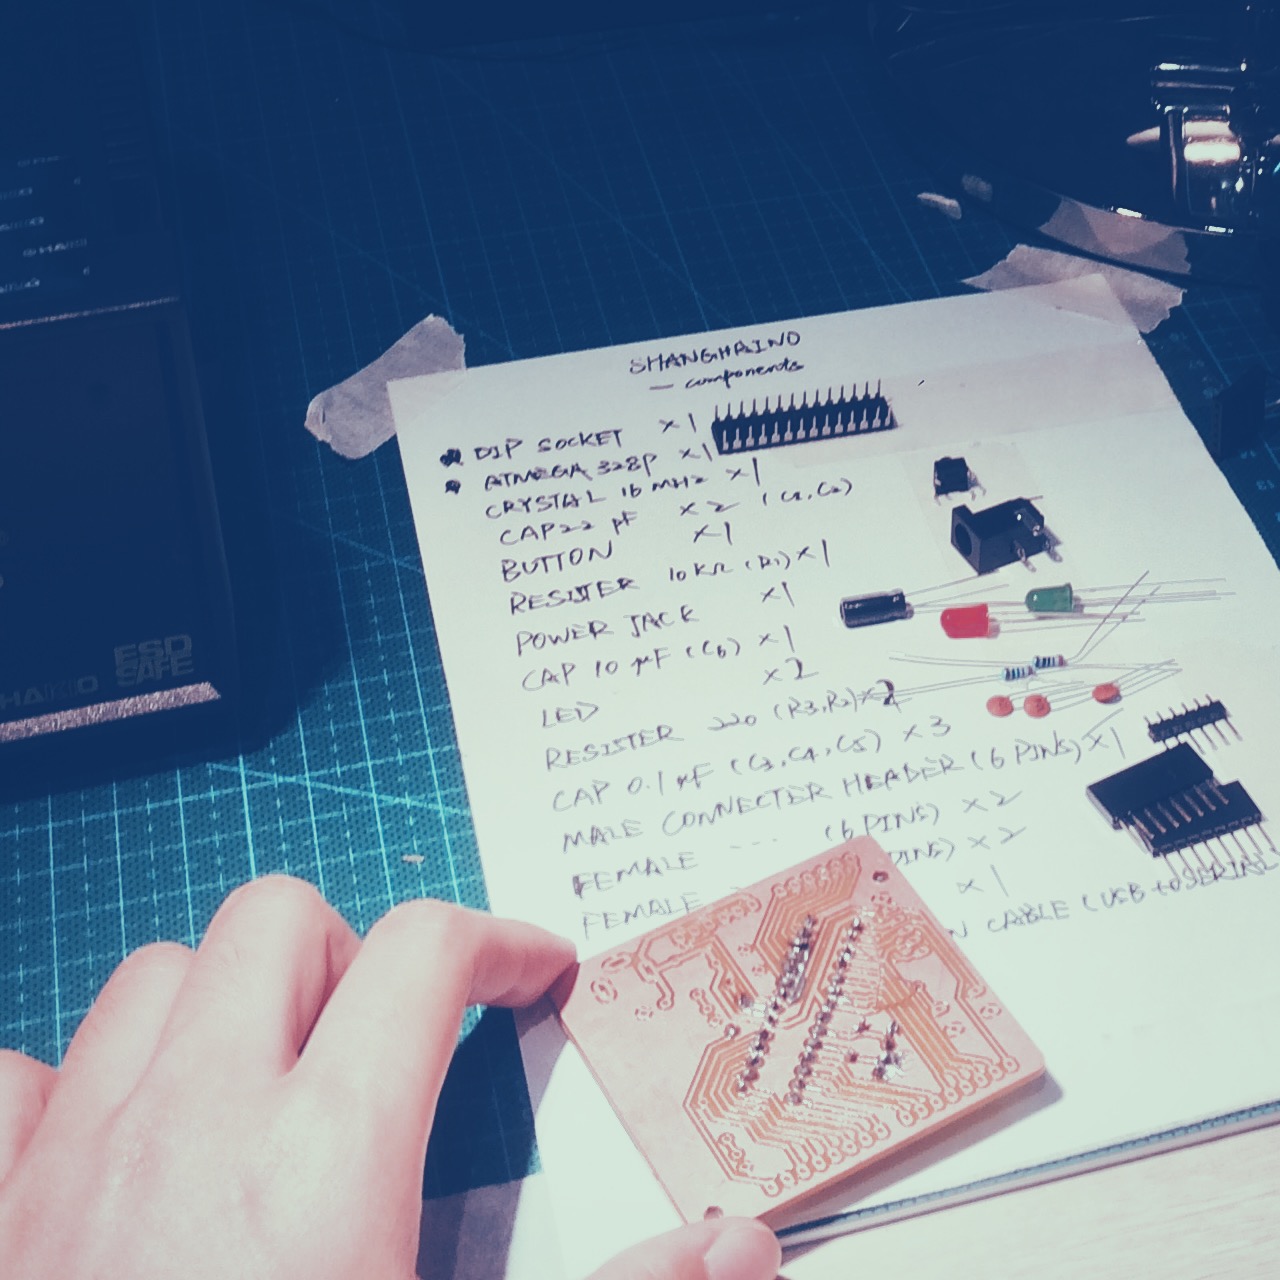 SHANGHAINO
— components
DIP SOCKET ×1
ATMEGA 328P ×1
CRYSTAL 16 MHz ×1
CAP 22 pF ×2 (C1,C2)
BUTTON ×1
RESISTER 10KΩ (R1) ×1
POWER JACK ×1
CAP 10 µF (C6) ×1
LED ×2
RESISTER 220 (R3,R2) ×2
CAP 0.1 µF (C3,C4,C5) ×3
MALE CONNECTER HEADER (6 PINS) ×1
FEMALE --- (6 PINS) ×2
FEMALE PINS) ×2
×1
N CABLE (USB to SERIAL
ESD
SAFE